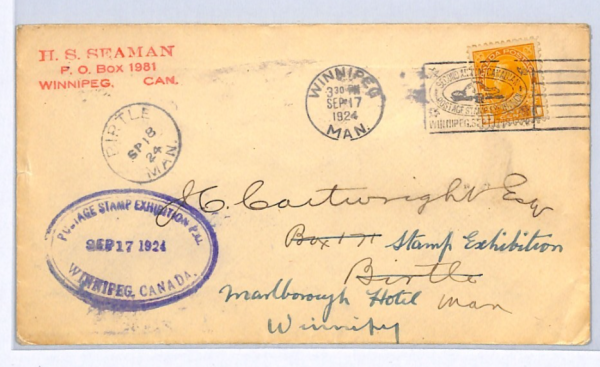 H. S. SEAMAN
P. O. Box 1981
WINNIPEG, CAN.
WINNIPEG
3 30 PM
SEP 17
1924
MAN.
WINNIPEG,
BIRTLE
SP 18
24
MAN.
POSTAGE STAMP EXHIBITION P.O.
SEP 17 1924
WINNIPEG, CANADA.
Cartwright Esq
Box 171 Stamp Exhibition
Birtle
Marlborough Hotel Man
Winnipeg